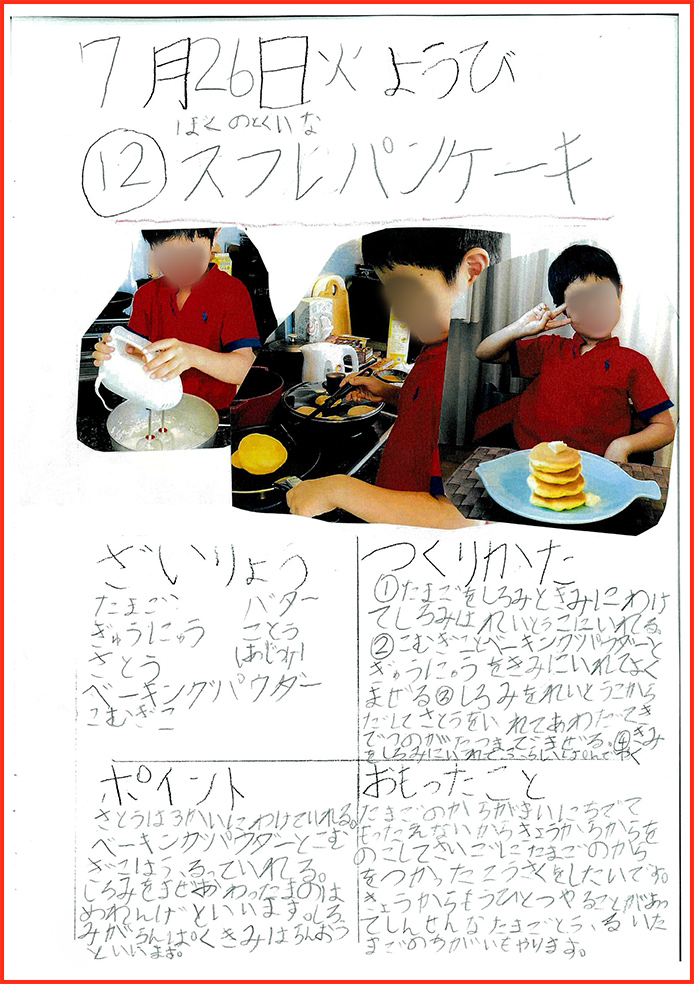 7月26日火ようび
ぼくのとくいな
⑫スフレパンケーキ
ざいりょう
たまご バター
ぎゅうにゅう ことう
さとう (あじつけ)
ベーキングパウダー
こむぎこ
つくりかた
①たまごをしろみときみにわけ
てしろみはれいとうこにいれる。
②こむぎことベーキングパウダーと
ぎゅうにゅうをきみにいれてよく
まぜる③しろみをれいとうこから
だしてさとうをいれてあわだてき
でつのがたつまでまぜる。④きみ
をしろみにいれて やく
ポイント
さとうは3かいにわけていれる。
ベーキングパウダーとこむ
ぎこはふるっていれる。
しろみをまぜおわったものは
めれんげといいます。しろ
みがらんぱくきみはらんおう
といいます。
おもったこと
たまごのからがまいにちでて
もったえないからきょうからからを
のこしてさいごにたまごのから
をつかったこうさくをしたいです。
きょうからもうひとつやることがあっ
てしんせんなたまごとふるいた
まごのちがいもやります。